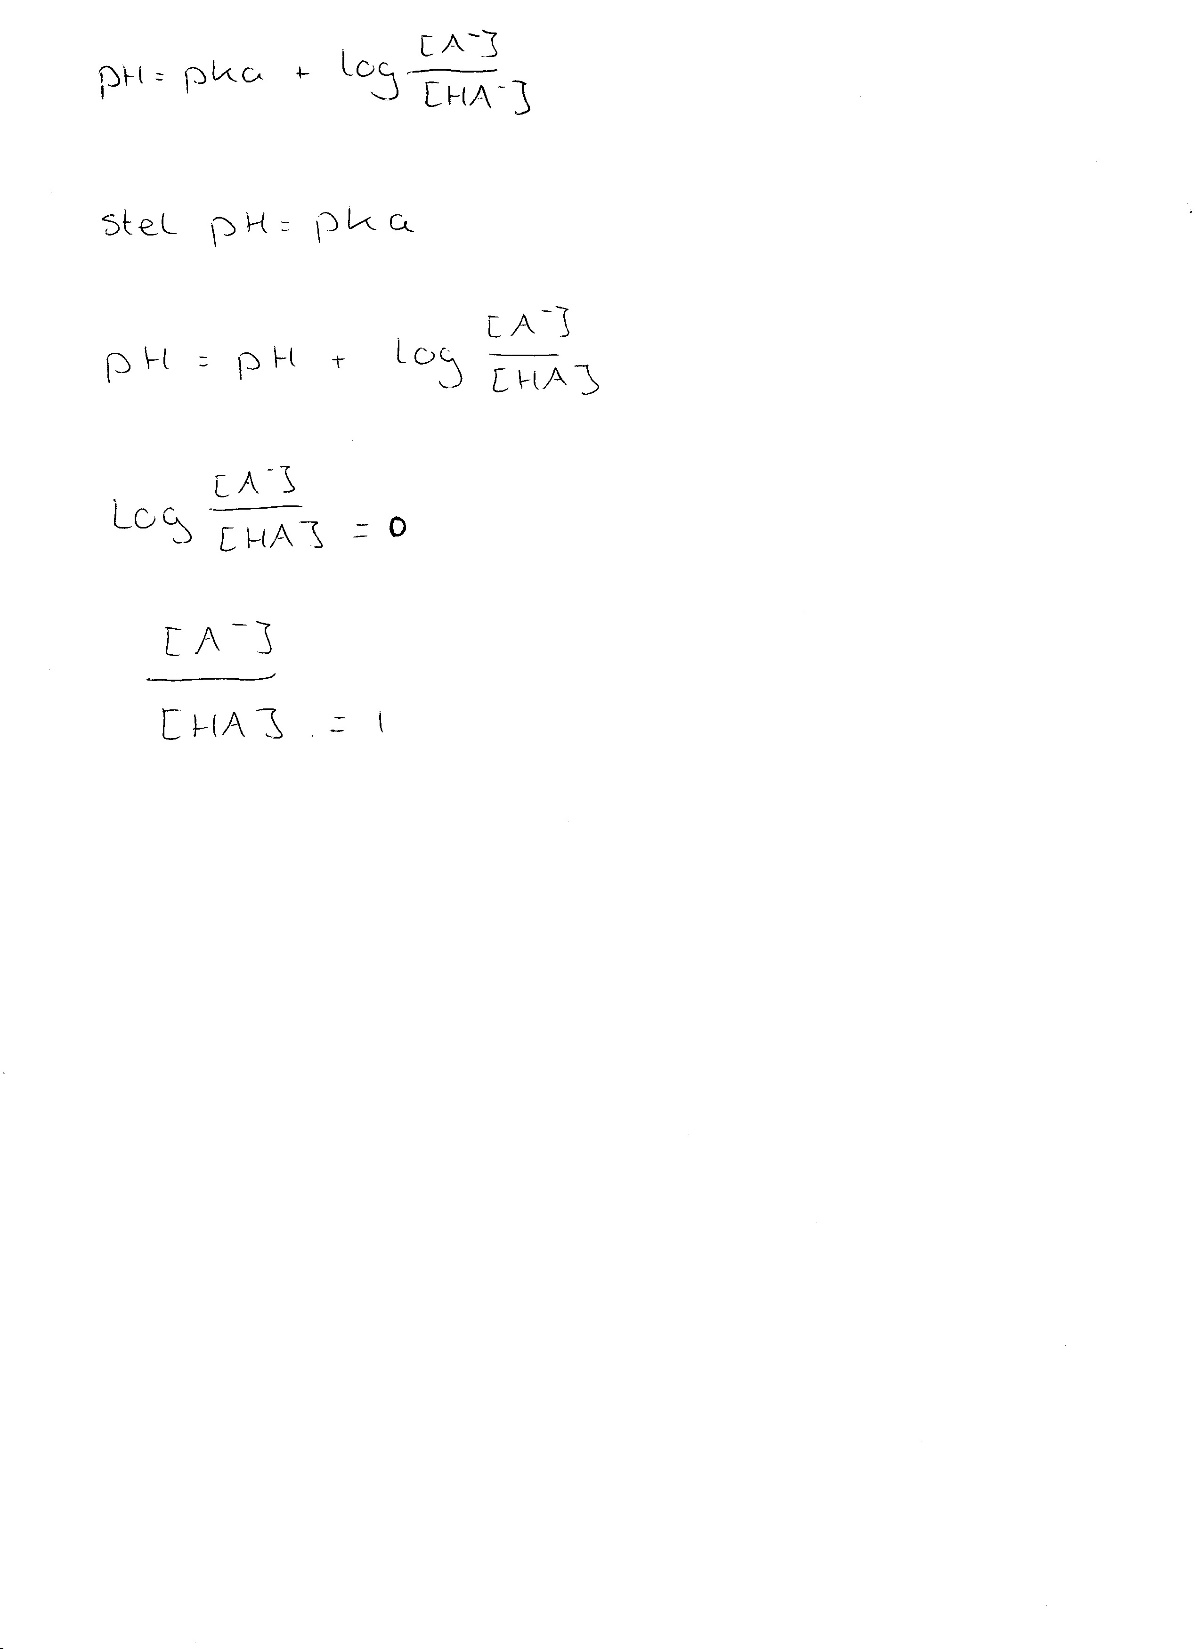 pH = pka + log [A⁻] / [HA⁻]
stel pH = pka
pH = pH + log [A⁻] / [HA]
log [A⁻] / [HA] = 0
[A⁻] / [HA] = 1